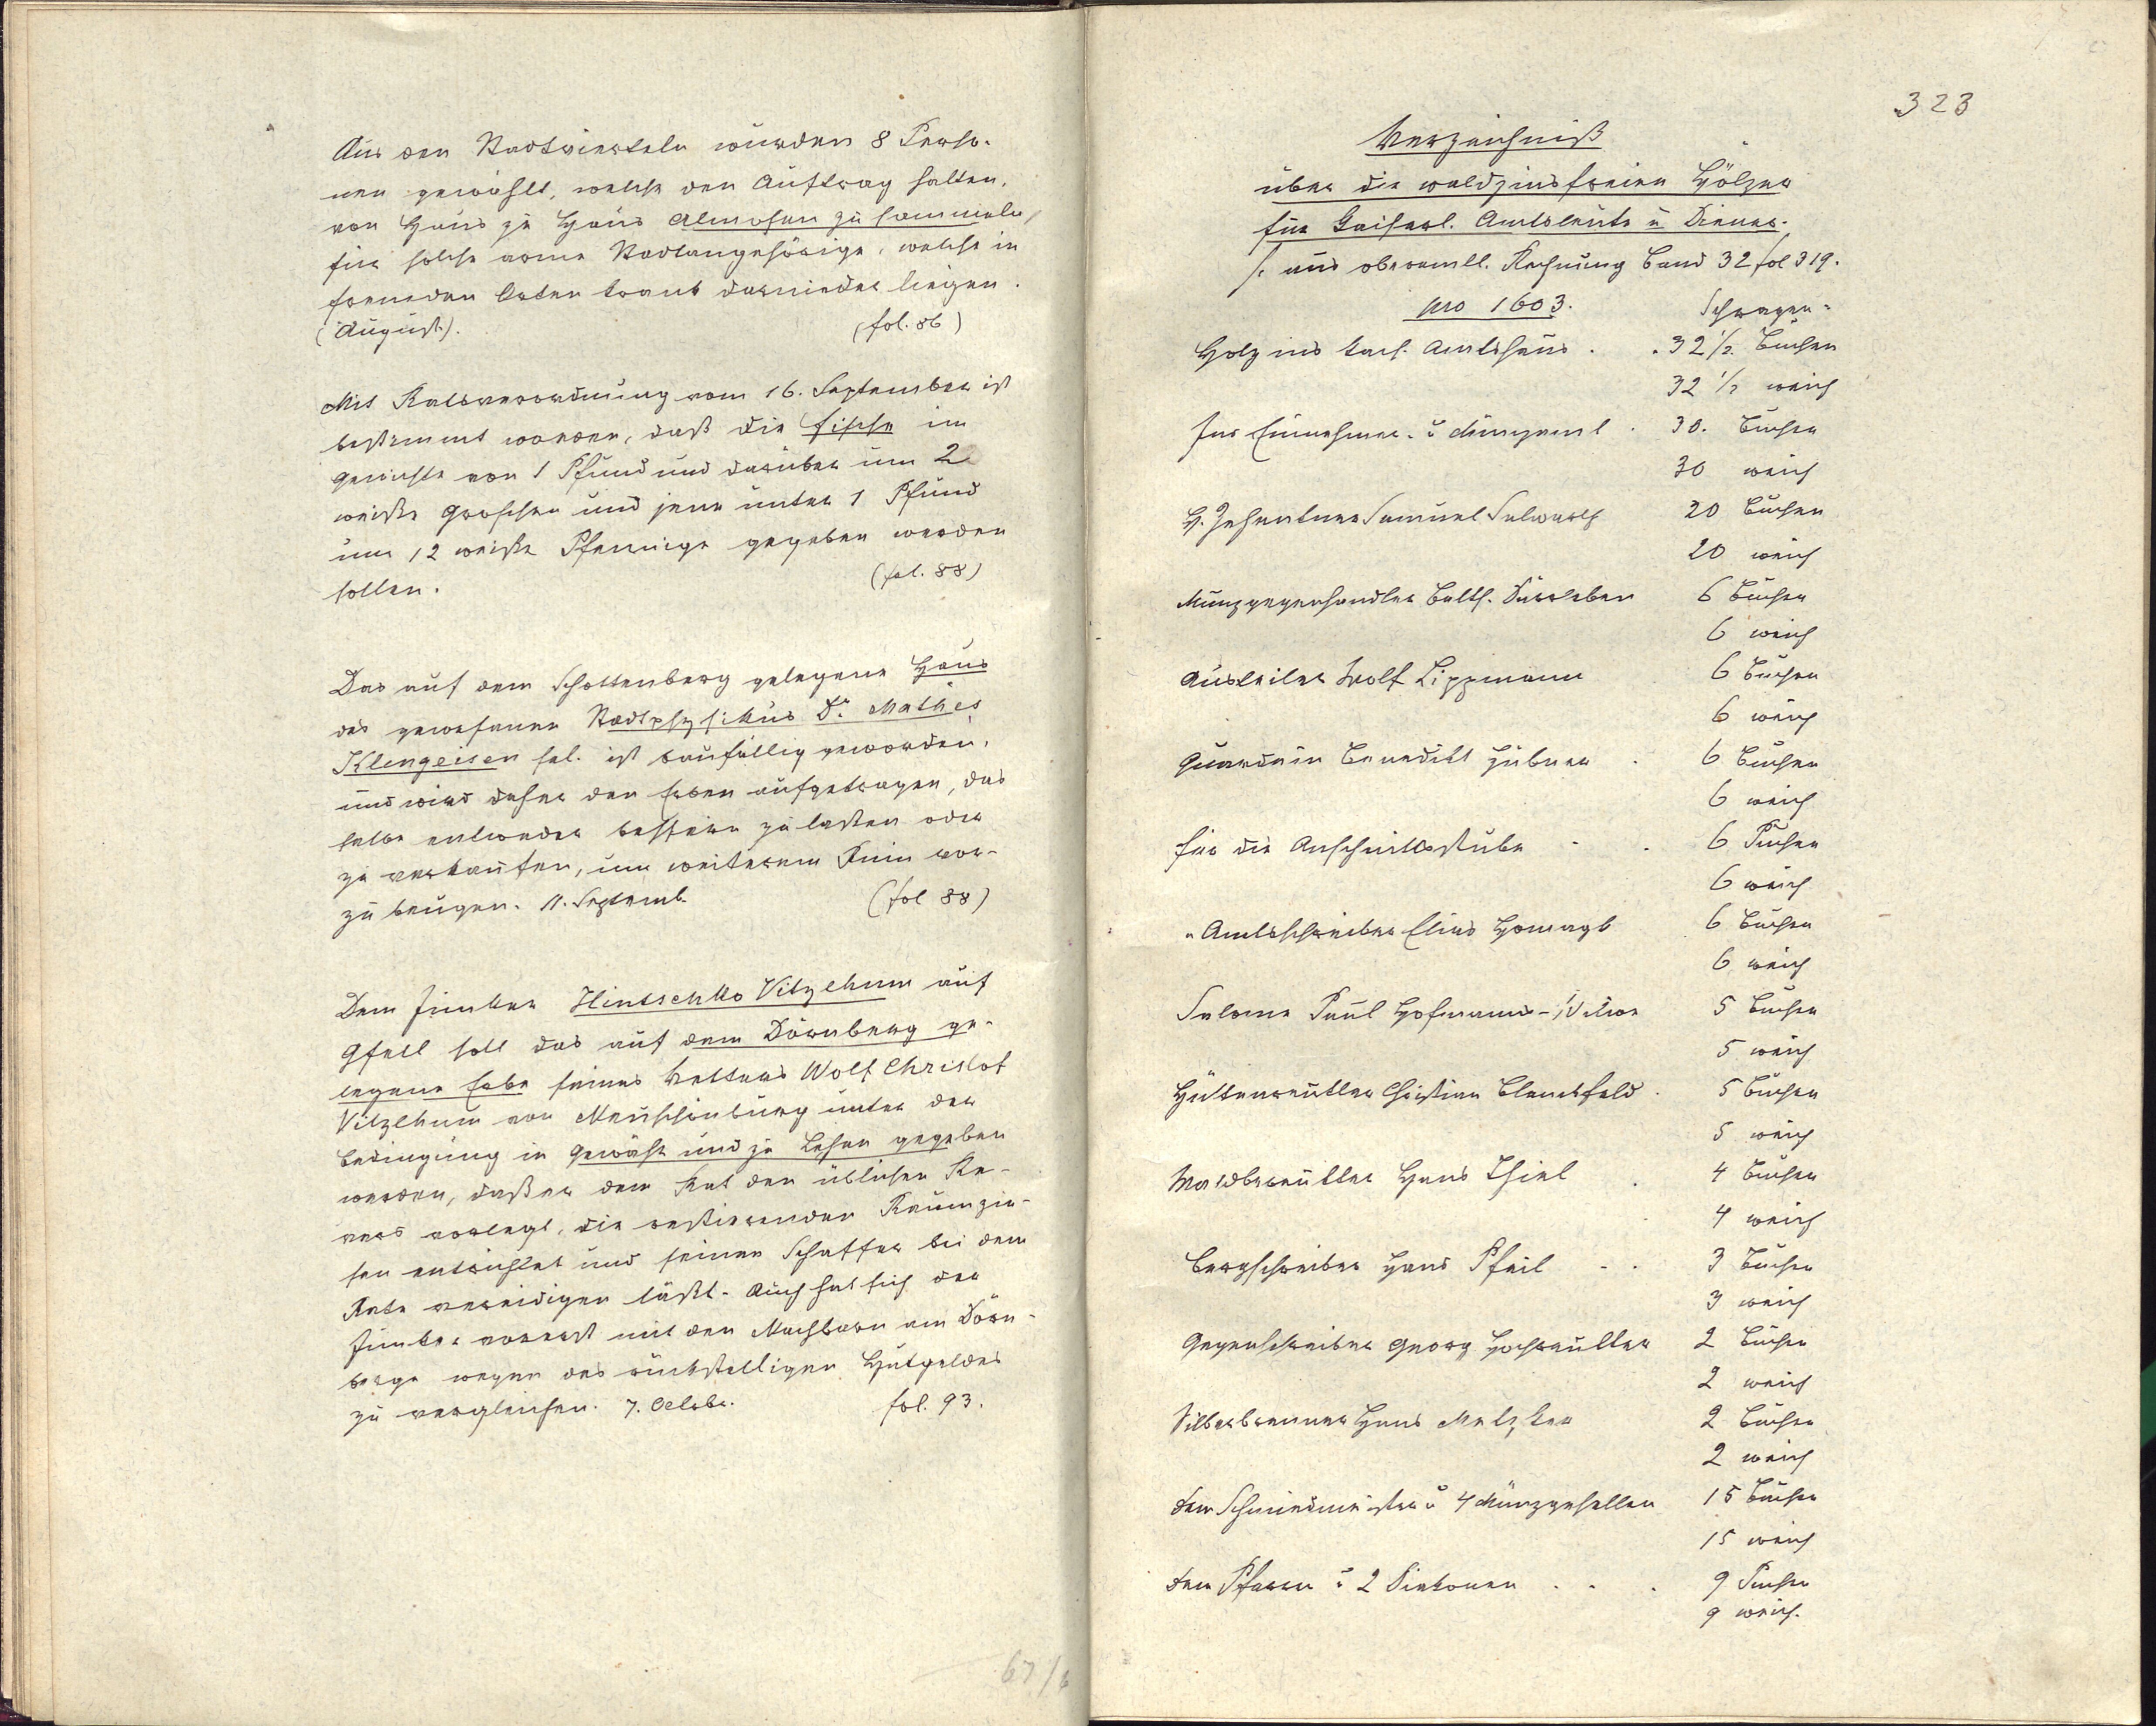 Aus den Stadtvierteln wurden 8 Perso-
nen gewählt, welche den Auftrag hatten,
von Haus zu Haus Almosen zu sammeln,
für solche arme Stadtangehörige, welche in
fremden Orten krank darnieder liegen.
(August). (fol. 86)
Mit Ratsverordnung vom 16. September ist
bestimmt worden, daß die Fische im
Gewichte von 1 Pfund und darüber um 2
weiße Groschen und jene unter 1 Pfund
um 12 weiße Pfennige gegeben werden
sollen. (fol. 88)
Das auf dem Schottenberg gelegene Haus
des gewesenen Stadtphysikus Dr. Mathes
Klengeisen sel. ist baufällig geworden,
und wird daher den Erben aufgetragen, das
selbe entweder bessern zu lassen oder
zu verkaufen, um weiterem Ruin vor-
zu beugen. 11. Septemb. (fol 88)
Dem Junker Hintschko Vitzthum auf
Gfell soll das auf dem Dörnberg ge-
legene Erbe seines Vetters Wolf Christof
Vitzthum von Neuschönburg unter der
Bedingung in Gewähr und zu Lehen gegeben
werden, daß er dem Rat den üblichen Re-
vers vorlegt, die restierenden Raumzin-
sen entrichtet und seinen Schaffer bei dem
Rate vereidigen läßt. Auch hat sich der
Junker vorerst mit den Nachbarn am Dörn-
berge wegen des rückstelligen Hutgeldes
zu vergleichen. 7. Octobr. fol. 93.
67/6
323
Verzeichniß
über die waldzinsfreien Hölzer
für Kaiserl. Amtsleute u Diener.
/: aus oberamtl. Rechnung Band 32 fol 319.
pro 1603. Schragen-
Holz ins kais. Amtshaus . . 32 1/2 Buchen
32 1/2 weich
Ins Einnehmer- u Münzamt . 30. Buchen
30 weich
H. Zehentner Samuel Salwarth 20 Buchen
20 weich
Münzgegenhandler Balth. Dürrleben 6 Buchen
6 weich
Austeiler Wolf Lippmann 6 Buchen
6 weich
Guardein Benedikt Hübner . 6 Buchen
6 weich
für die Anschnittstube - . 6 Buchen
6 weich
" Amtsschreiber Elias Howagt 6 Buchen
6 weich
Salome Paul Hofmanns-Witwe 5 Buchen
5 weich
Hüttenreutter Christian Blankfeld . 5 Buchen
5 weich
Waldbereutter Hans Thiel . 4 Buchen
4 weich
Bergschreiber Hans Pfeil - . 3 Buchen
3 weich
Gegenschreiber Georg Hochreutter 2 Buchen
2 weich
Silberbrenner Hans Metzker 2 Buchen
2 weich
dem Schmiedmeister u 4 Münzgesellen 15 Buchen
15 weich
dem Pfarrer u 2 Diakonen . . . 9 Buchen
9 weich.